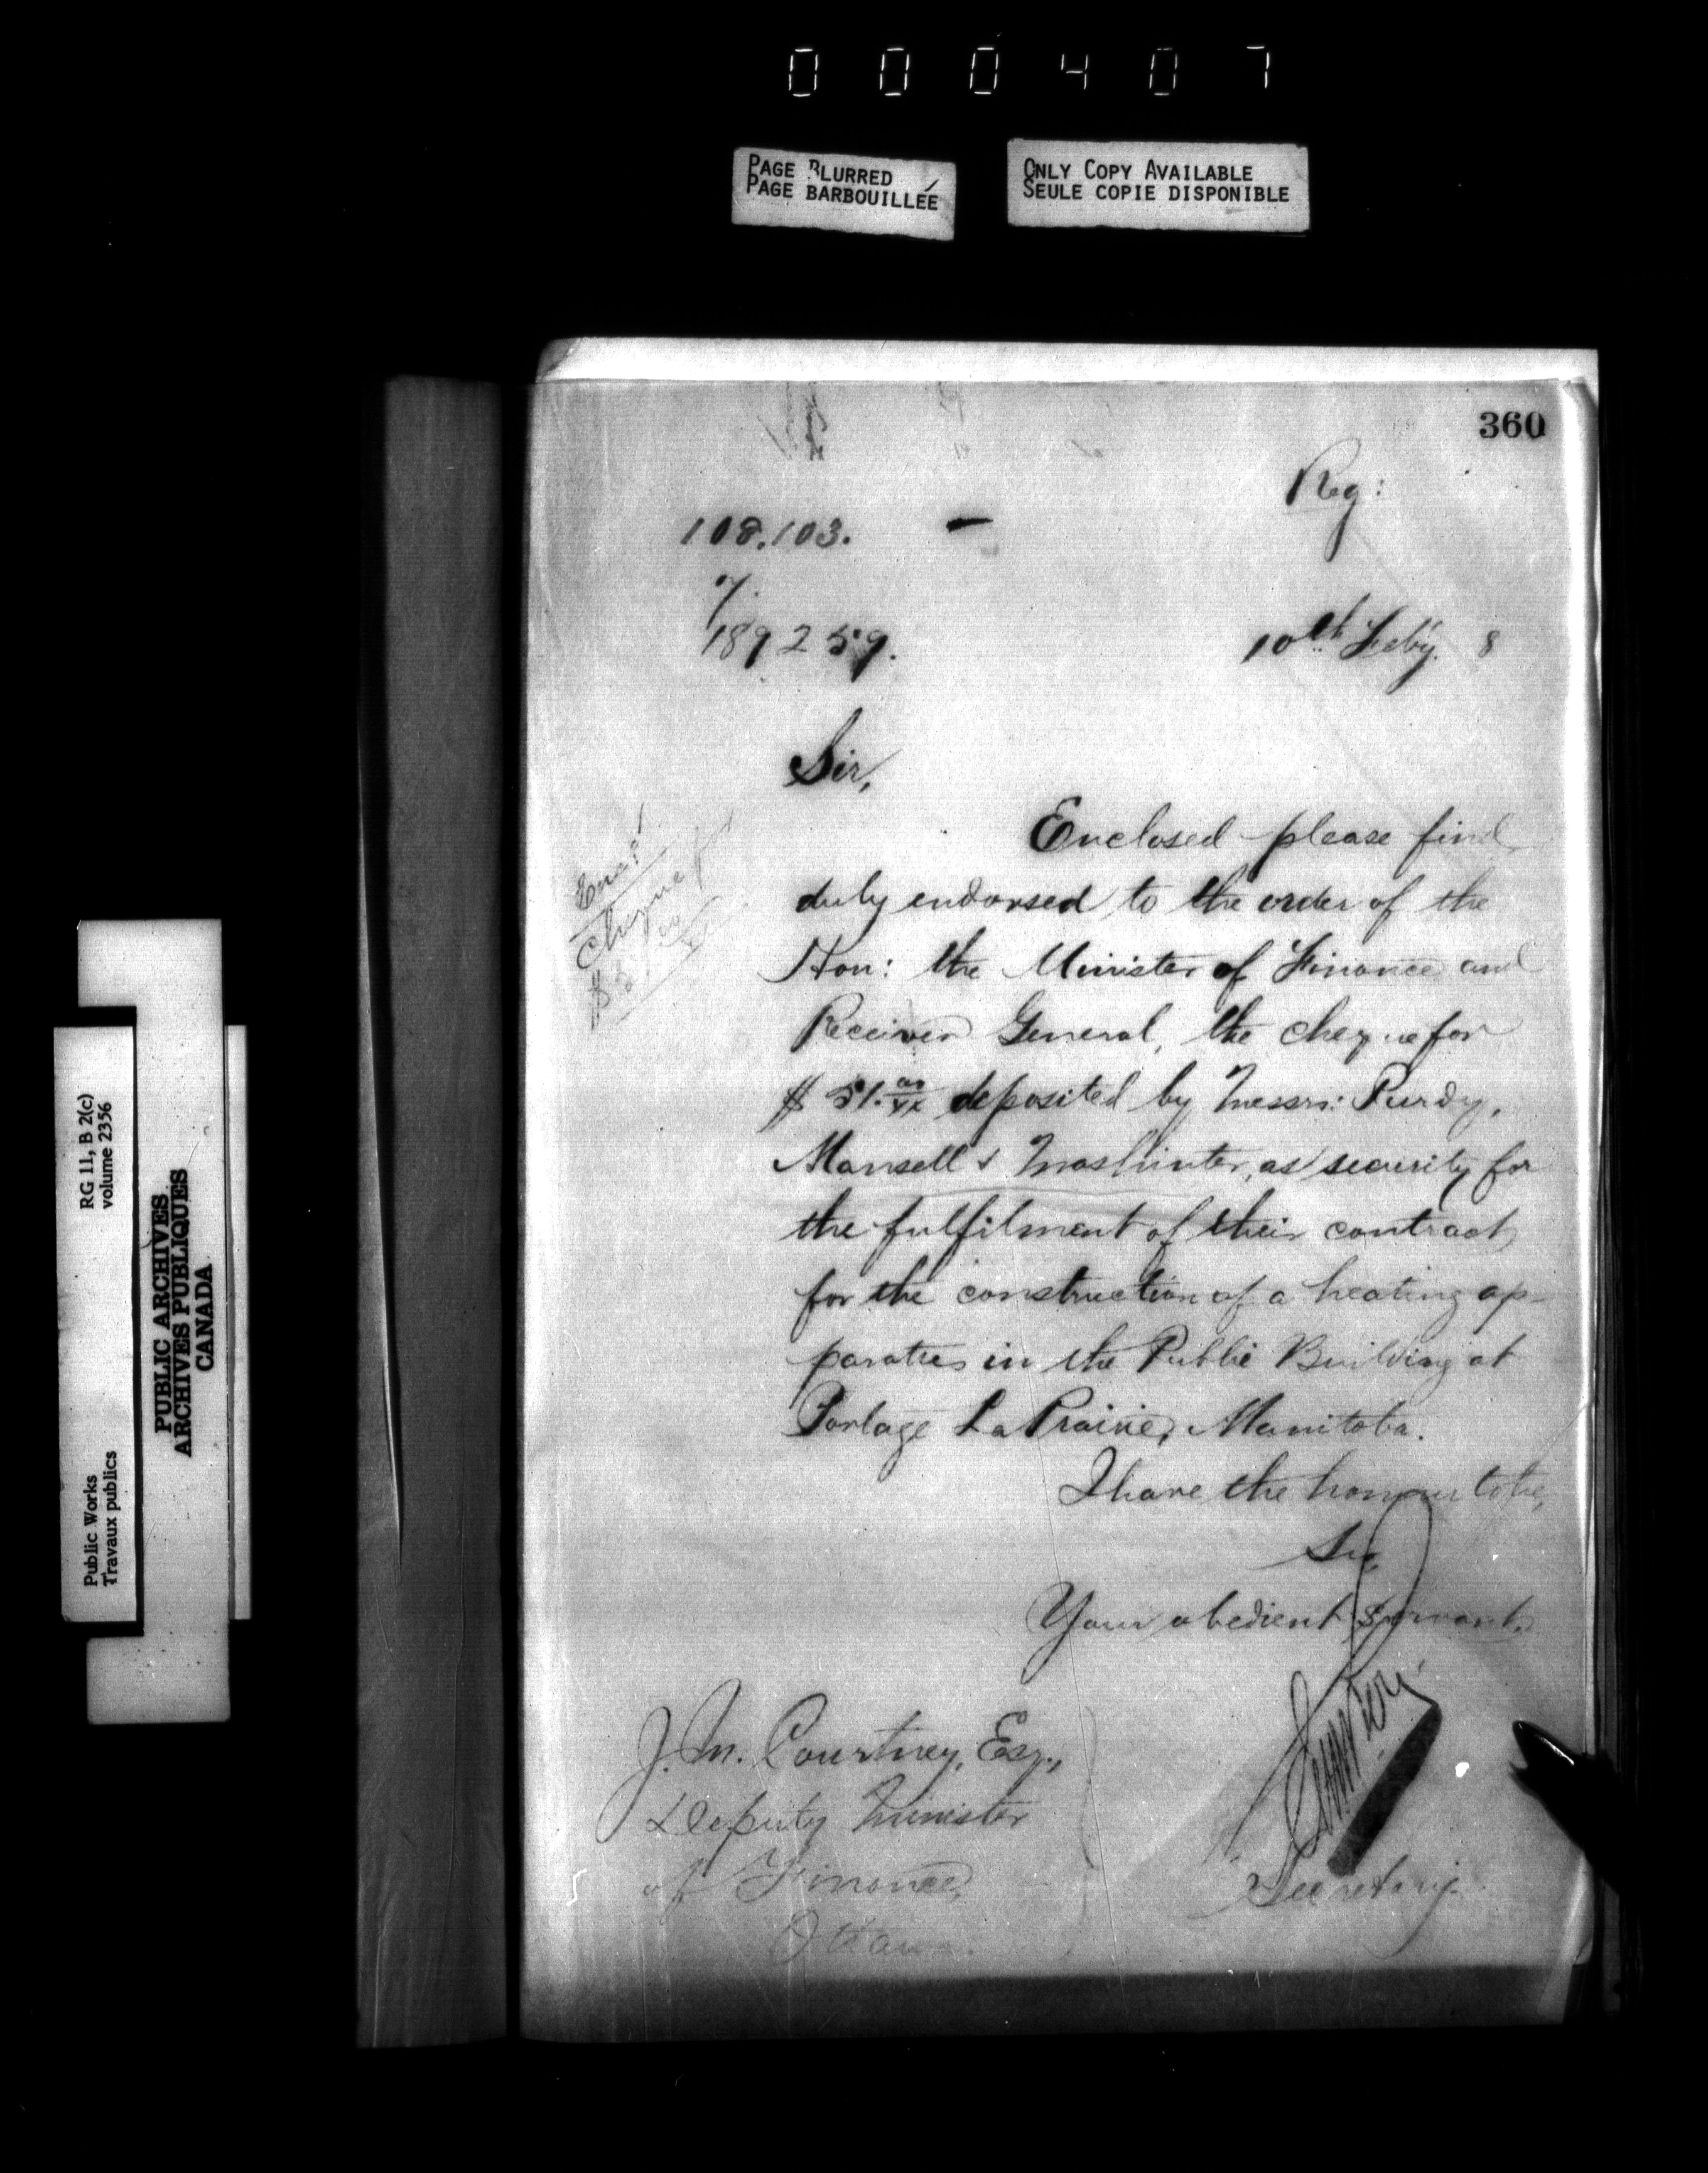 000407
PAGE BLURRED
PAGE BARBOUILLÉE
ONLY COPY AVAILABLE
SEULE COPIE DISPONIBLE
360
Reg:
108.103.
189259.
10th Feby. 8
Sir,
Enclosed please find
duly endorsed to the order of the
Hon: the Minister of Finance and
Receiver General, the cheque for
$ 51. 00/xx deposited by Messrs: Purdy,
Mansell & Mashinter, as security for
the fulfilment of their contract
for the construction of a heating ap-
paratus in the Public Building at
Portage La Prairie, Manitoba.
I have the honour to be,
Sir,
Your obedient servant,
Secretary.
J. M. Courtney, Esq.,
Deputy Minister
of Finance,
Ottawa.
Encl.
cheque for
RG 11, B 2(c)
volume 2356
PUBLIC ARCHIVES
ARCHIVES PUBLIQUES
CANADA
Public Works
Travaux publics